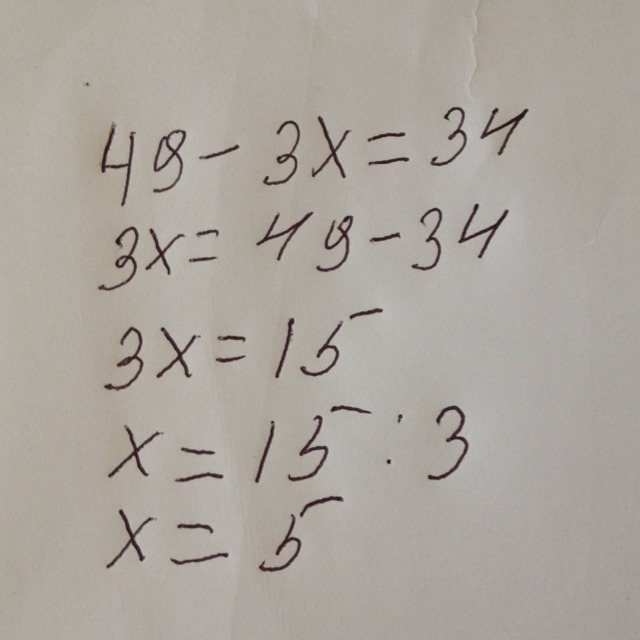 49 - 3x = 34
3x = 49 - 34
3x = 15
x = 15 : 3
x = 5